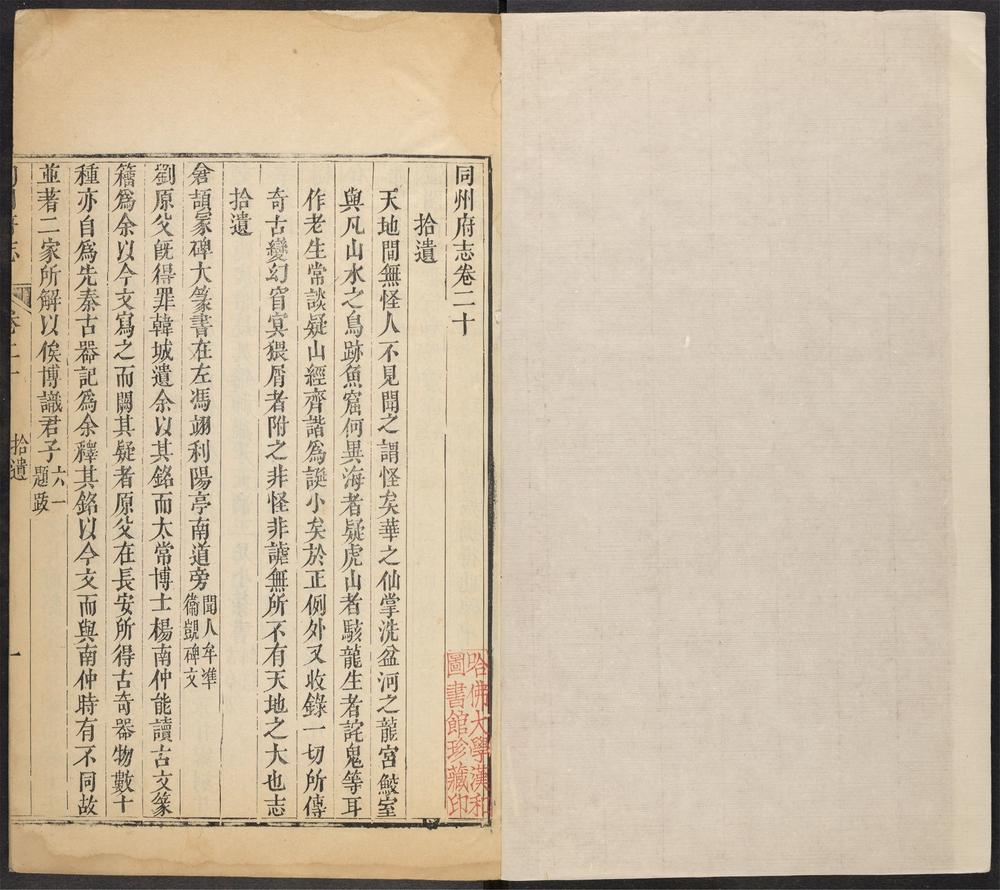 同州府志卷二十
拾遺
天地間無怪人不見聞之謂怪矣華之仙掌洗盆河之龍宮鮫室
與凡山水之鳥跡魚窟何異海者疑虎山者駭龍生者詫鬼等耳
作老生常談疑山經齊諧爲誕小矣於正例外又收錄一切所傳
奇古變幻窅冥猥屑者附之非怪非謔無所不有天地之大也志
拾遺
倉頡冢碑大篆書在左馮翊利陽亭南道旁聞人牟準
衞覬碑文
劉原父旣得罪韓城遺余以其銘而太常博士楊南仲能讀古文篆
籒爲余以今文寫之而闕其疑者原父在長安所得古奇器物數十
種亦自爲先秦古器記爲余釋其銘以今文而與南仲時有不同故
並著二家所解以俟博識君子六一
題跋
州府志
卷二十
拾遺
一
哈佛大學漢和
圖書館珍藏印